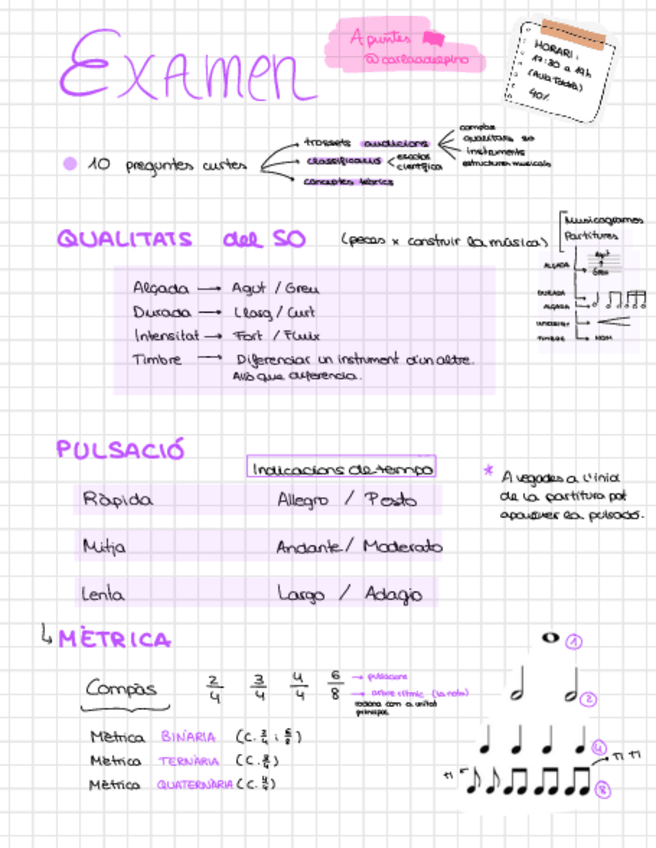 Examen
Apuntes
@carlaadelpino
HORARI:
17:30 a 19h
(Aula Teoria)
40%
10 preguntes curtes
trossets audicions
compàs
qualitats so
instruments
estructures musicals
classificació
escoles
científica
conceptes teòrics
QUALITATS del SO (peces x construir la música)
Musicogrames
Partitures
ALÇADA
Agut
Greu
DURADA
ALÇADA
INTENSITAT
TIMBRE
NOM
Alçada → Agut / Greu
Durada → Llarg / Curt
Intensitat → Fort / Fluix
Timbre → Diferenciar un instrument d'un altre.
Allò que diferencia.
PULSACIÓ
Indicacions de tempo
* A vegades a l'inici
de la partitura pot
aparèixer la pulsació.
Ràpida Allegro / Presto
Mitja Andante / Moderato
Lenta Largo / Adagio
↳ MÈTRICA
Compàs 2/4 3/4 4/4 6/8
→ pulsacions
→ arbre rítmic (la nota)
rodona com a unitat
principal
Mètrica BINÀRIA (C. 2/4 i 6/8)
Mètrica TERNÀRIA (C. 3/4)
Mètrica QUATERNÀRIA (C. 4/4)
1
2
4
TI TI
TI
8